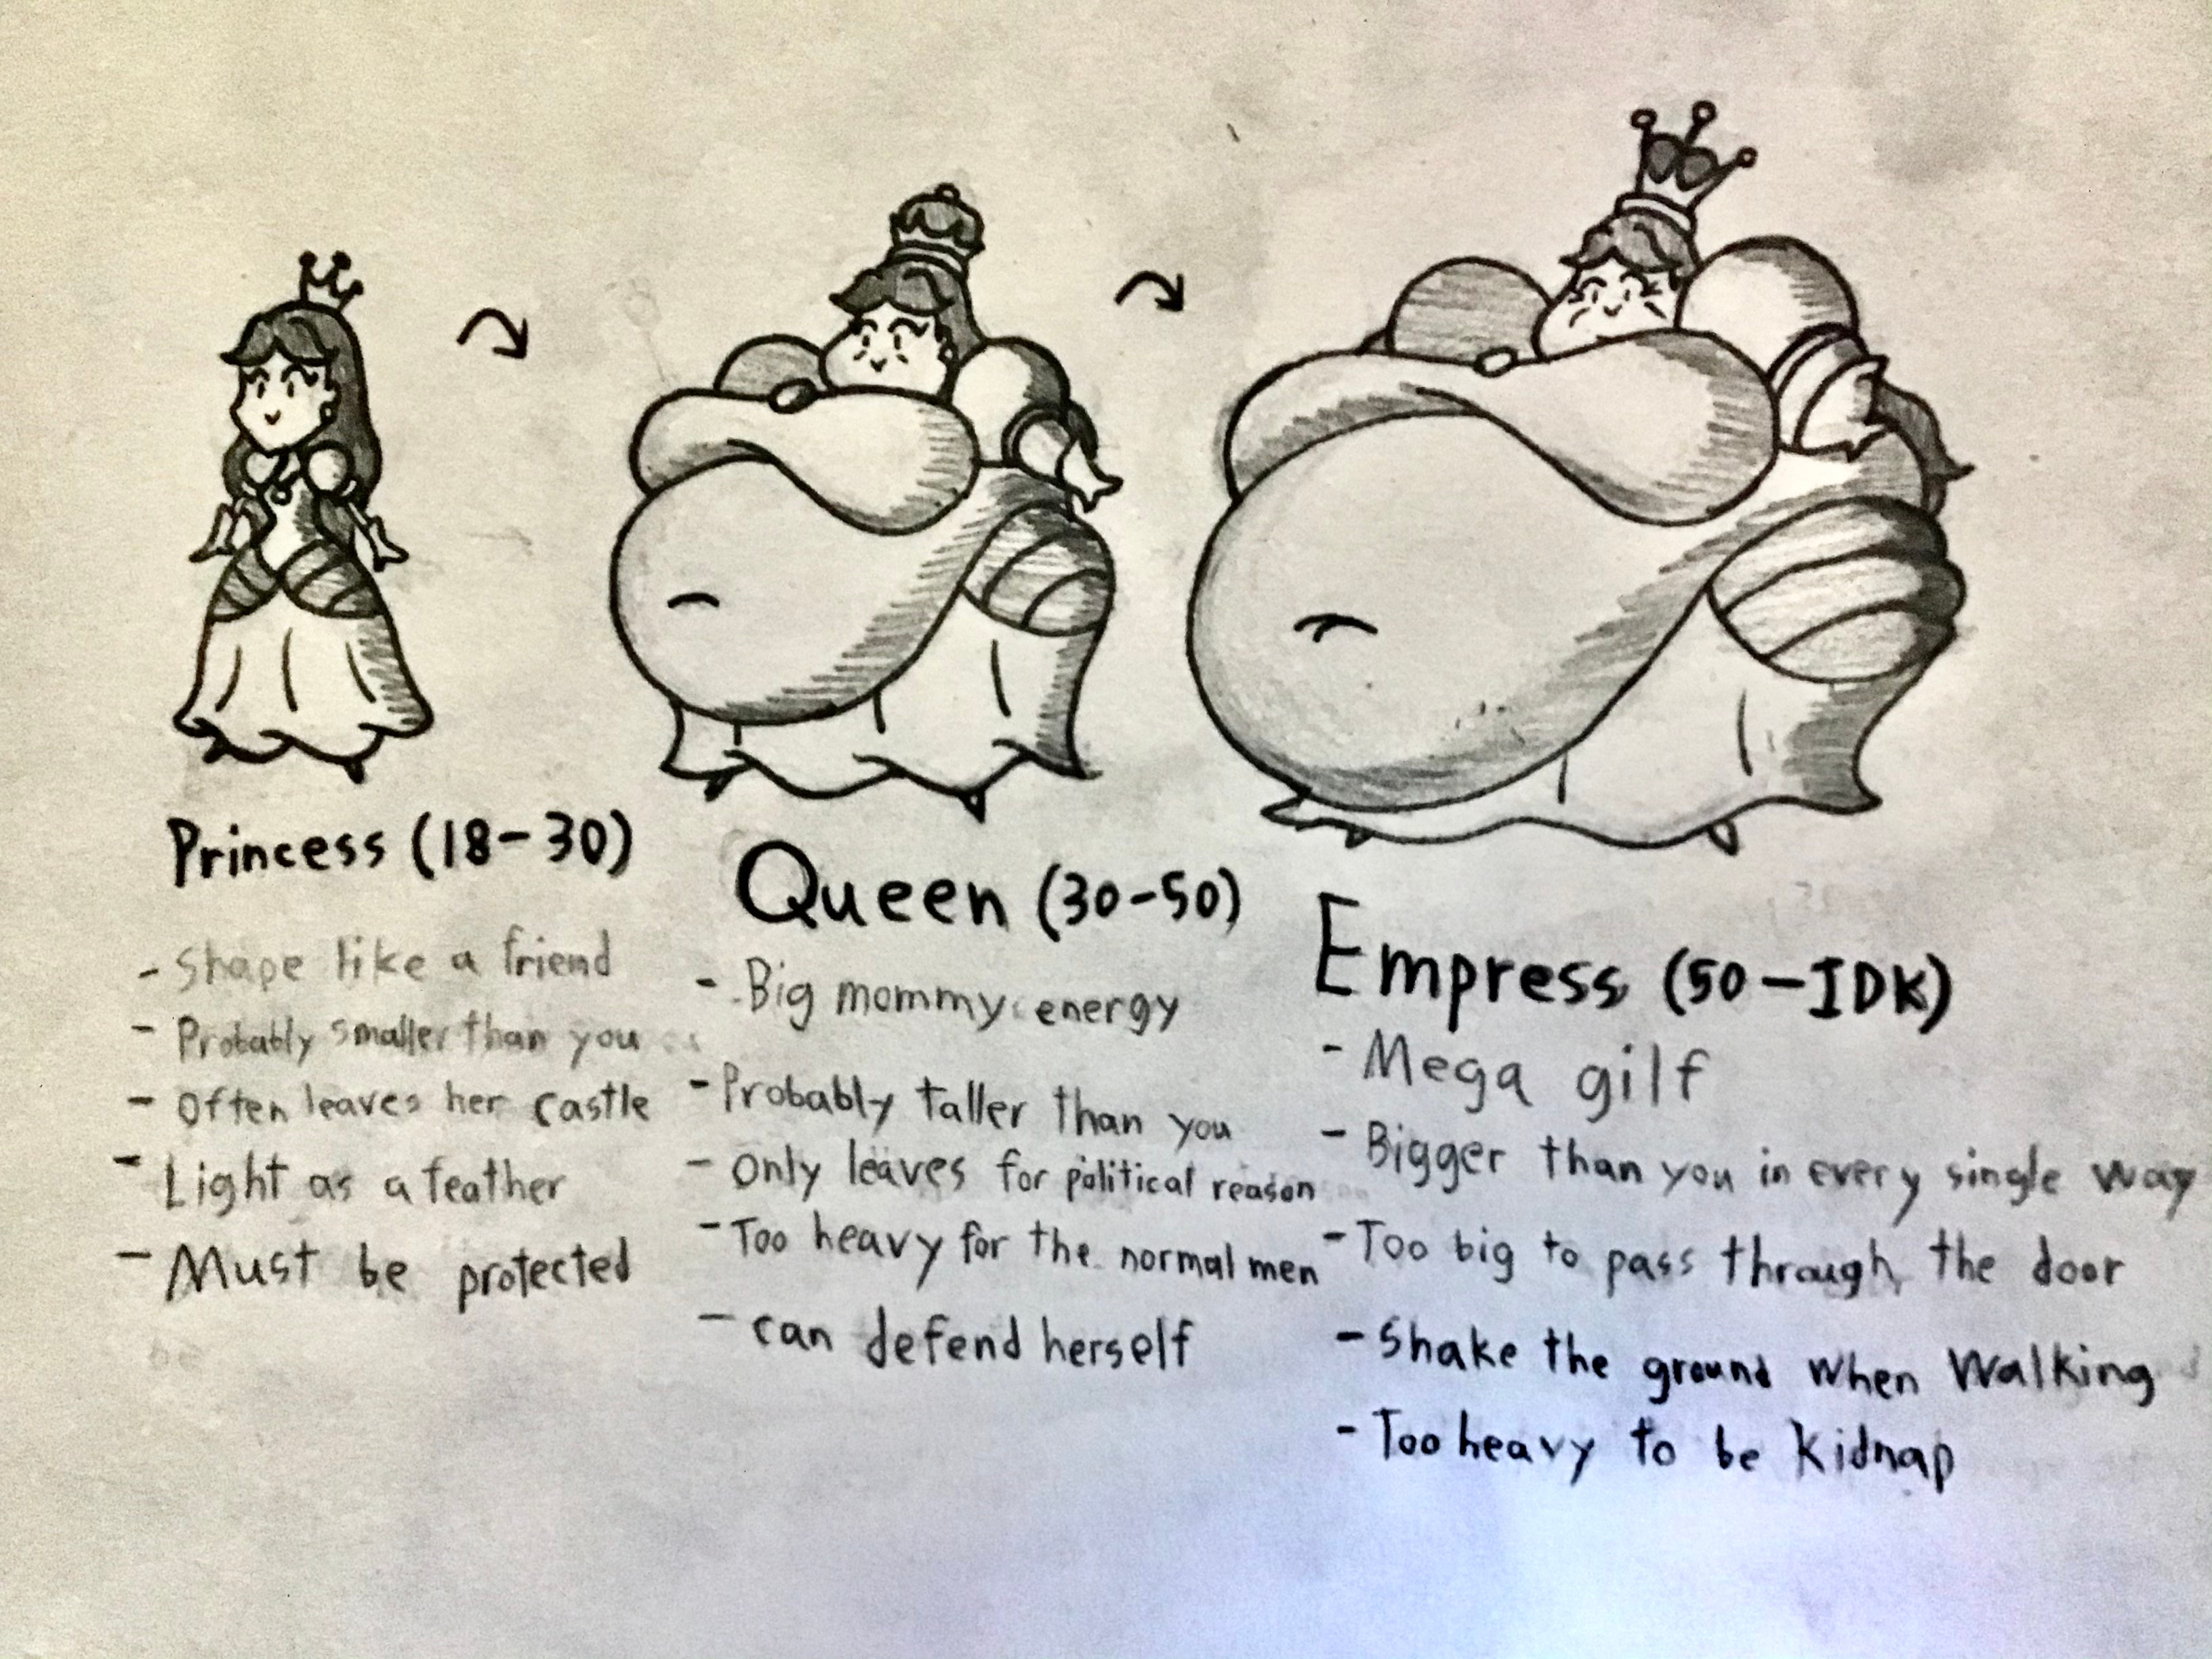 Princess (18-30)
- Shape like a friend
- Probably smaller than you
- Often leaves her castle
- Light as a feather
- Must be protected
Queen (30-50)
- Big mommy energy
- Probably taller than you
- Only leaves for political reason
- Too heavy for the normal men
- can defend herself
Empress (50-IDK)
- Mega gilf
- Bigger than you in every single way
- Too big to pass through the door
- Shake the ground when walking
- Too heavy to be kidnap